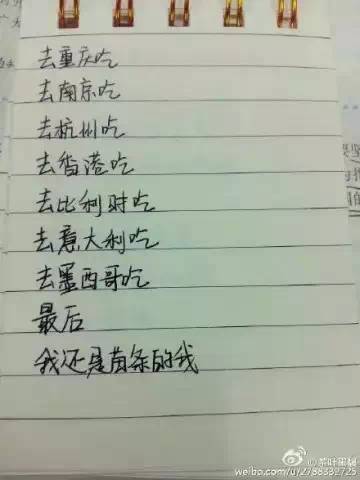 去重庆吃
去南京吃
去杭州吃
去香港吃
去比利时吃
去意大利吃
去墨西哥吃
最后
我还是苗条的我
@茶叶蛋超
weibo.com/u/2788332725